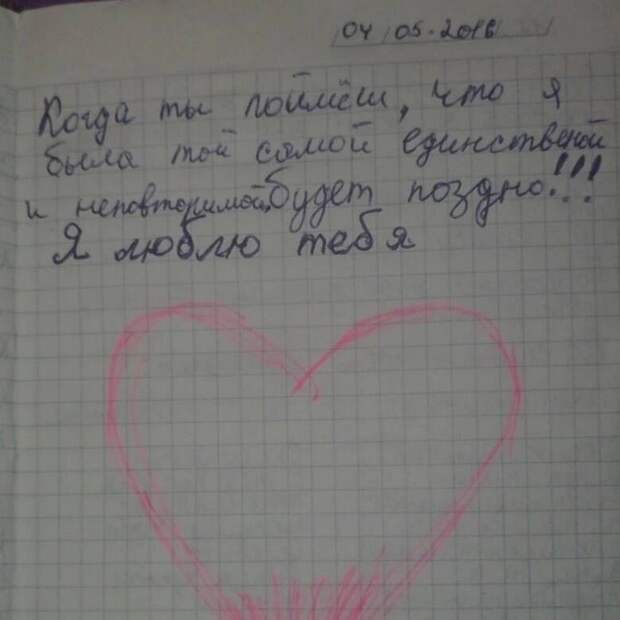 04 05.2016
Когда ты поймёш, что я
была той самой единственой
и неповторимой, будет поздно!!!
Я люблю тебя